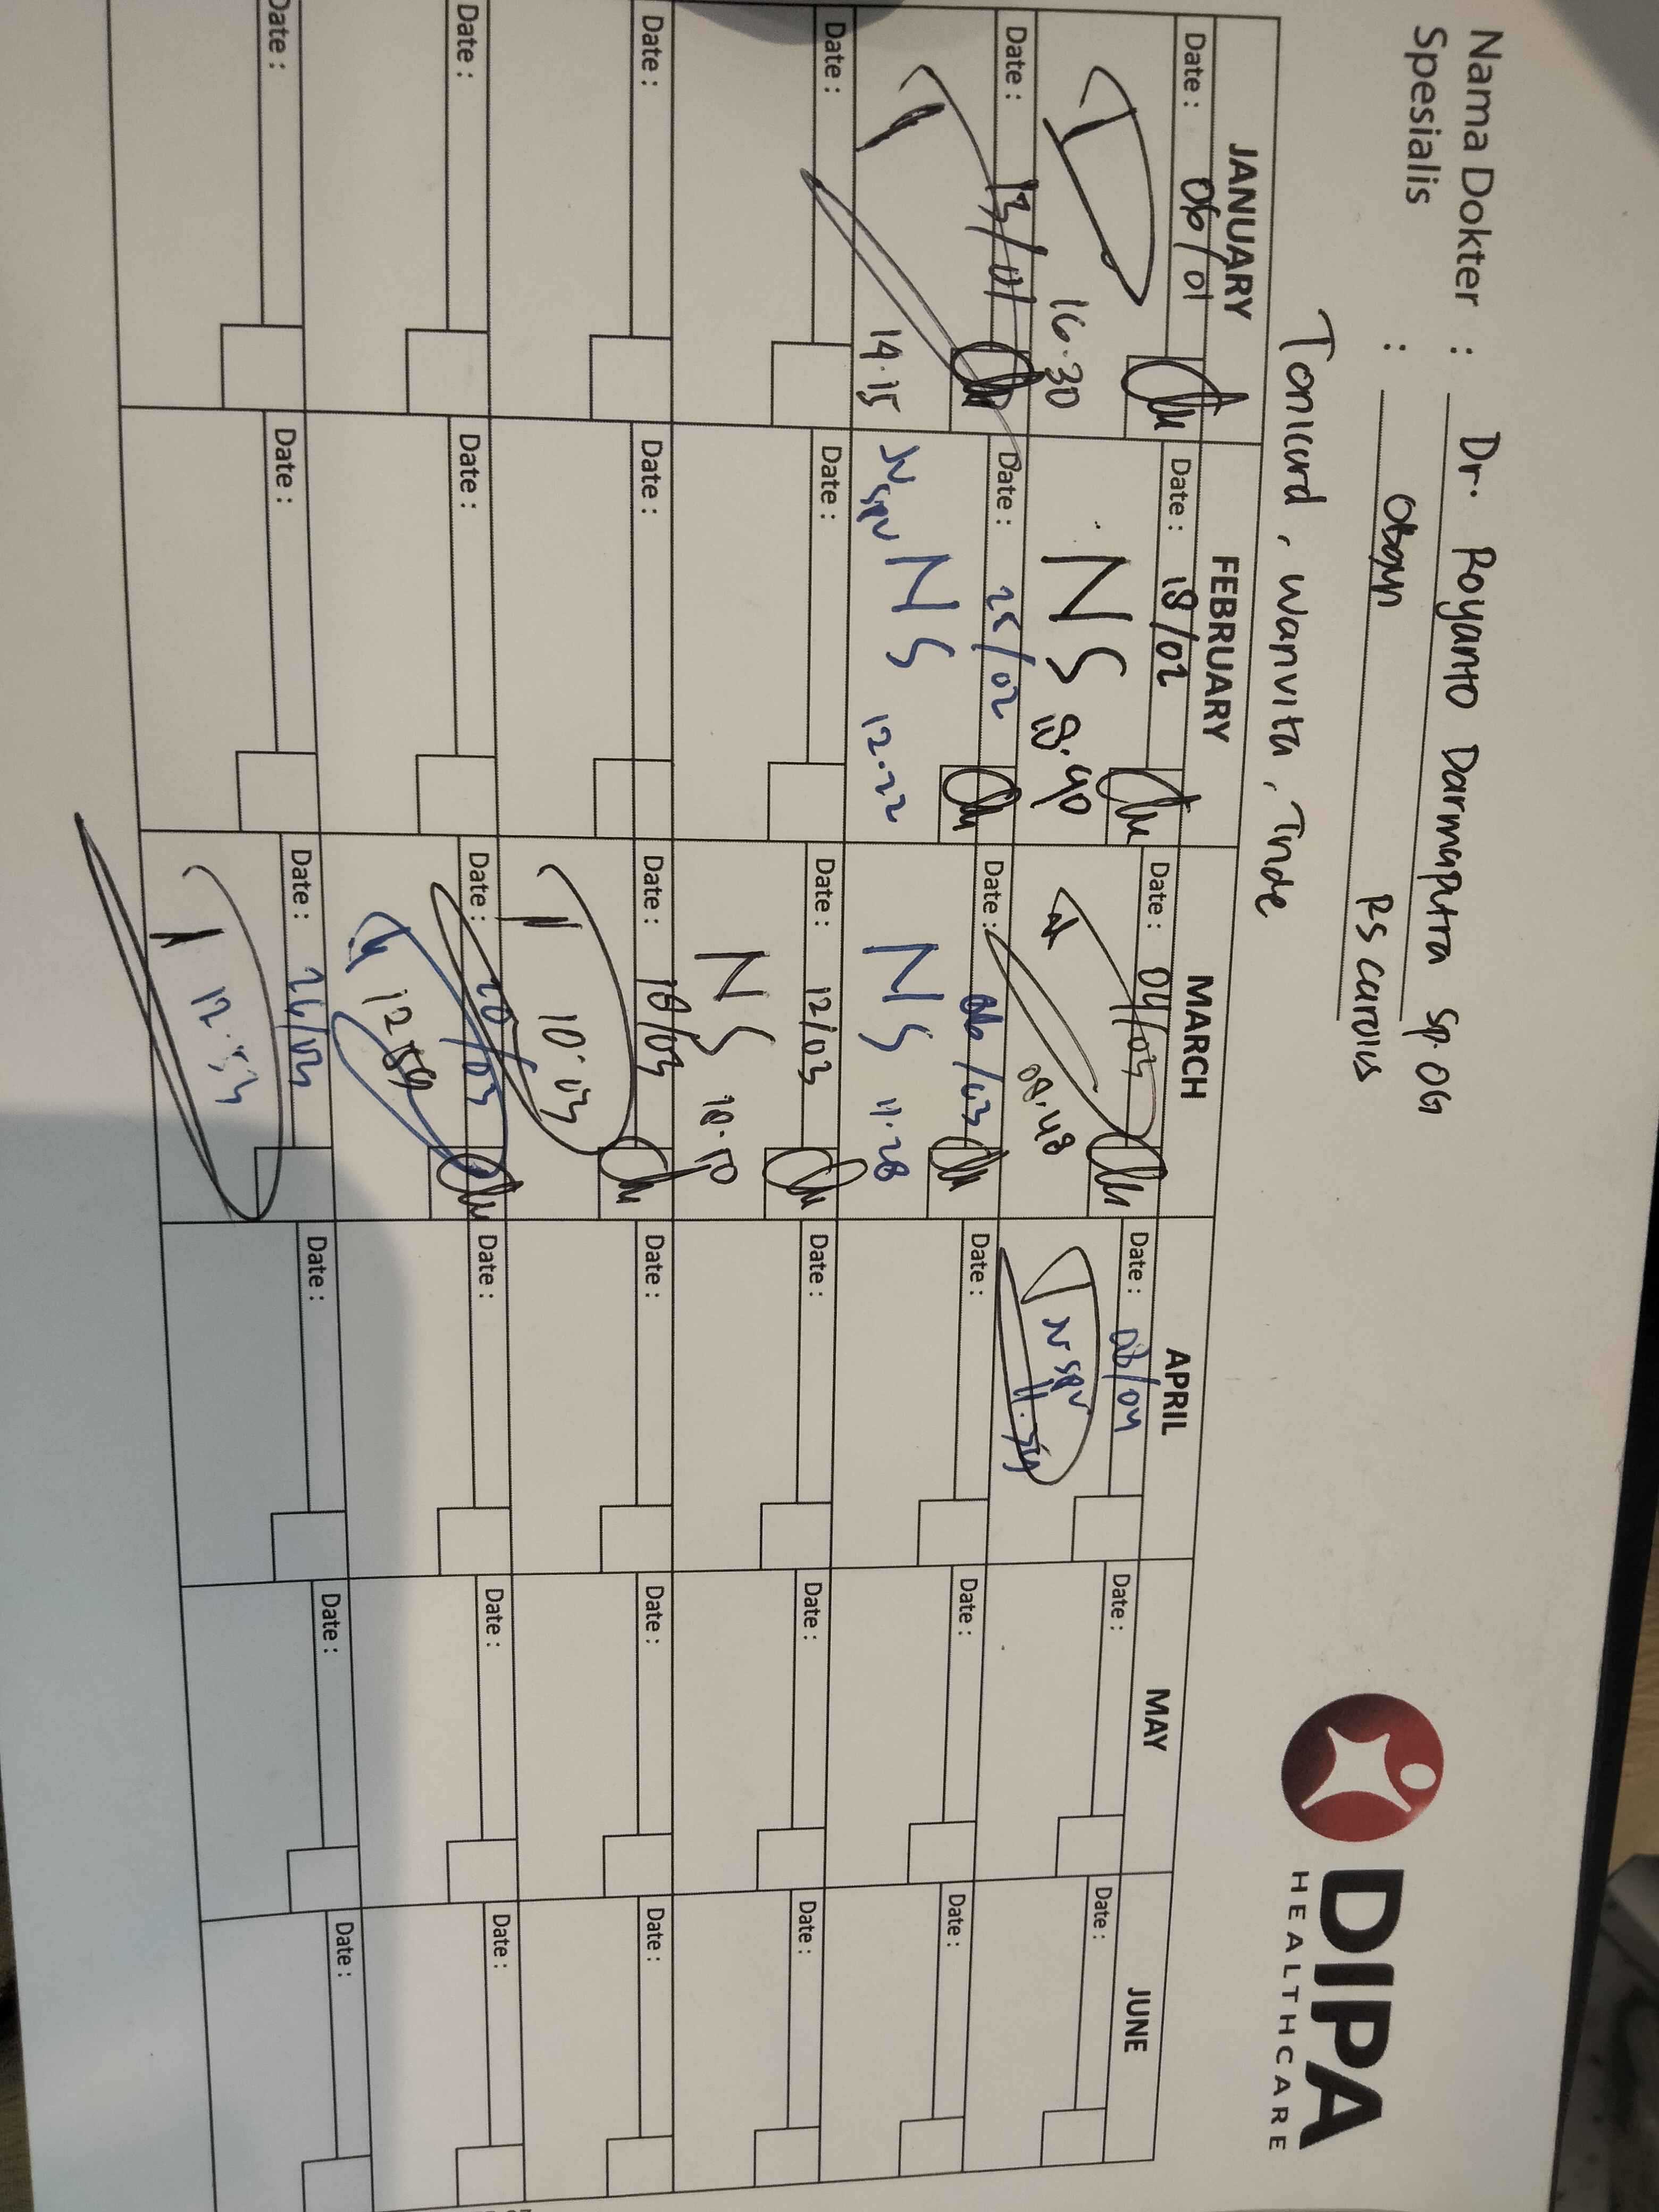 Nama Dokter : Dr. Royanto Darmaputra Sp.OG
Spesialis : Obgyn RS Carolus
DIPA
HEALTHCARE
Tonicard, Wanvita, Tinde
JANUARY FEBRUARY MARCH APRIL MAY JUNE
Date : 06/01 Date : 18/02 Date : 04/03 Date : 08/04 Date : Date :
16.30 NS 18.40 08.48 11.54
Date : 13/01 Date : 25/02 Date : 06/03 Date : Date : Date :
14.15 NS 12.22 NS 11.28
Date : Date : Date : 12/03 Date : Date : Date :
NS 10.10
Date : Date : Date : 18/03 Date : Date : Date :
10.03
Date : Date : Date : 20/03 Date : Date : Date :
12.59
Date : Date : Date : 26/03 Date : Date : Date :
12.53